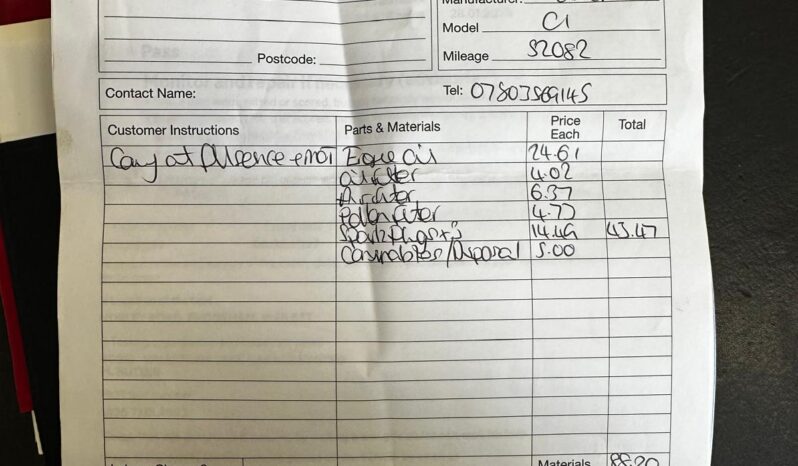 Manufacturer:
Model C1
Postcode: Mileage 52082
Contact Name: Tel: 07803569145
Customer Instructions Parts & Materials Price Each Total
Carry out + MOT Engine oil 24.61
oil filter 4.02
Air filter 6.37
Pollen filter 4.73
Spark Plugs x3 14.49 43.47
Consumables/Disposal 5.00
Materials 88.20